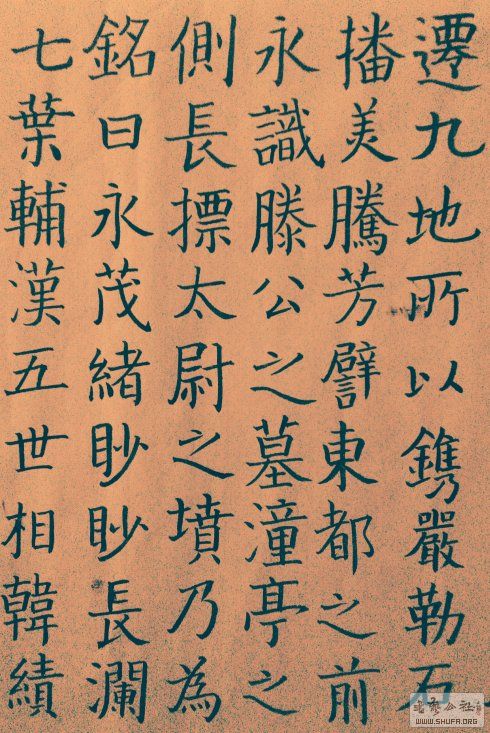 遷九地所以鎸嚴勒石
播美騰芳譬東都之前
永識滕公之墓潼亭之
側長摽太尉之墳乃為
銘曰永茂緒眇眇長瀾
七葉輔漢五世相韓績
WWW.SHUFA.ORG